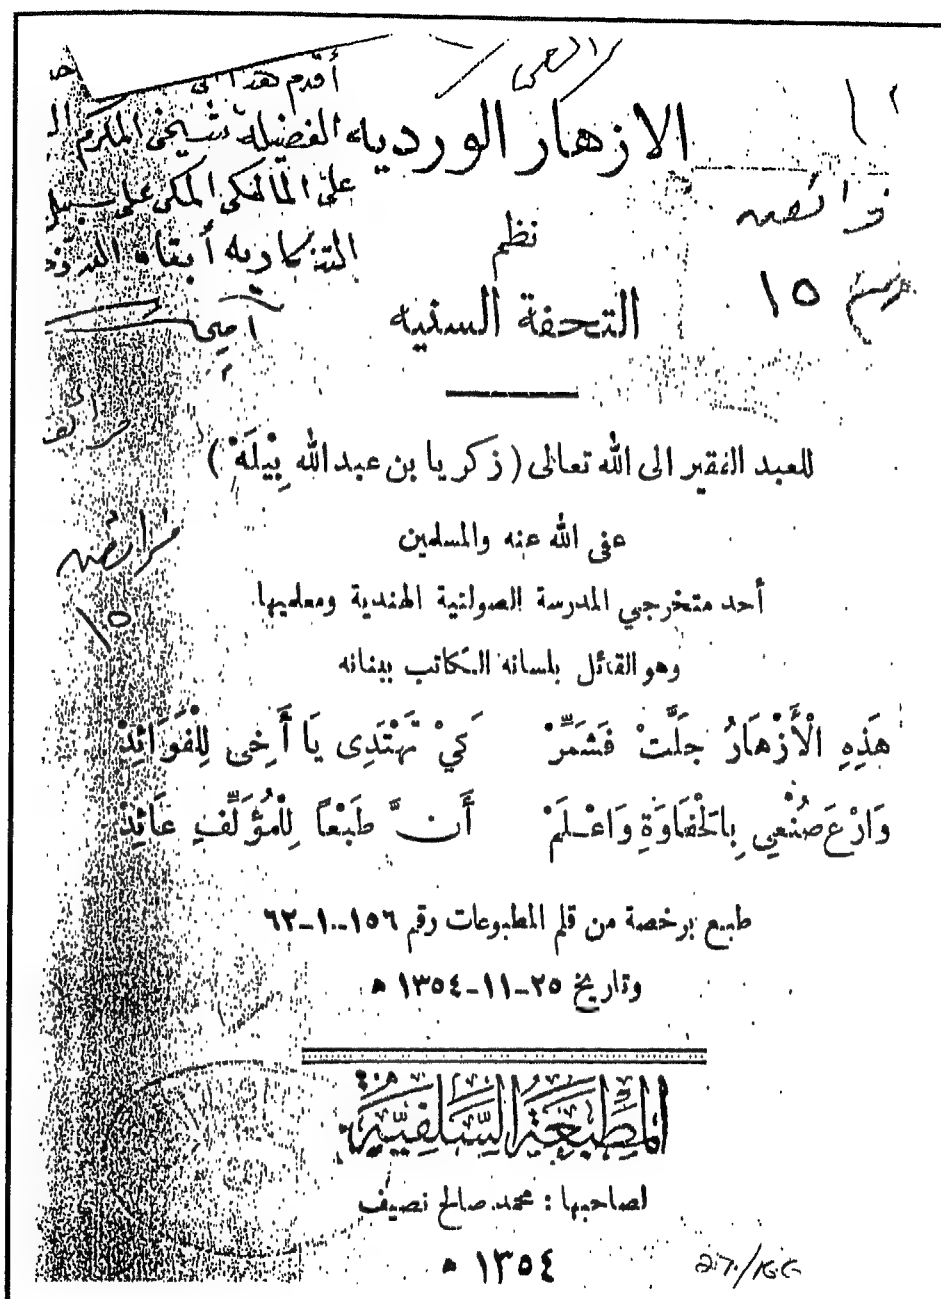 الفرائض
أقدم هذا الى
الازهار الورديه
الفضيلة شيخي المكرم
علي المالكي المكي على سبيل
فرائض
نظم
التذكاريه أبقاه الله
١٥
التحفة السنيه
آمين
للعبد الفقير الى الله تعالى ( زكريا بن عبد الله بِيْلَهْ )
عفى الله عنه والمسلمين
فرائض
أحد متخرجي المدرسة الصولتية الهندية ومعلميها.
١٥
وهو القائل بلسانه الكاتب ببنانه
هَذِهِ الْأَزْهَارُ جَلَّتْ فَشَمِّرْ كَيْ تَهْتَدِى يَا أَخِى لِلْفَوَائِدْ
وَارْعَ صُنْعِي بِالْحَفَاوَةِ وَاعْلَمْ أَنَّ طَبْعًا لِلْمُؤَلِّفِ عَائِدْ
طبع برخصة من قلم المطبوعات رقم ١٥٦-١٠-٦٢
وتاريخ ٢٥-١١-١٣٥٤ ه
المطبعة السلفية
لصاحبها : محمد صالح نصيف
١٣٥٤ ه